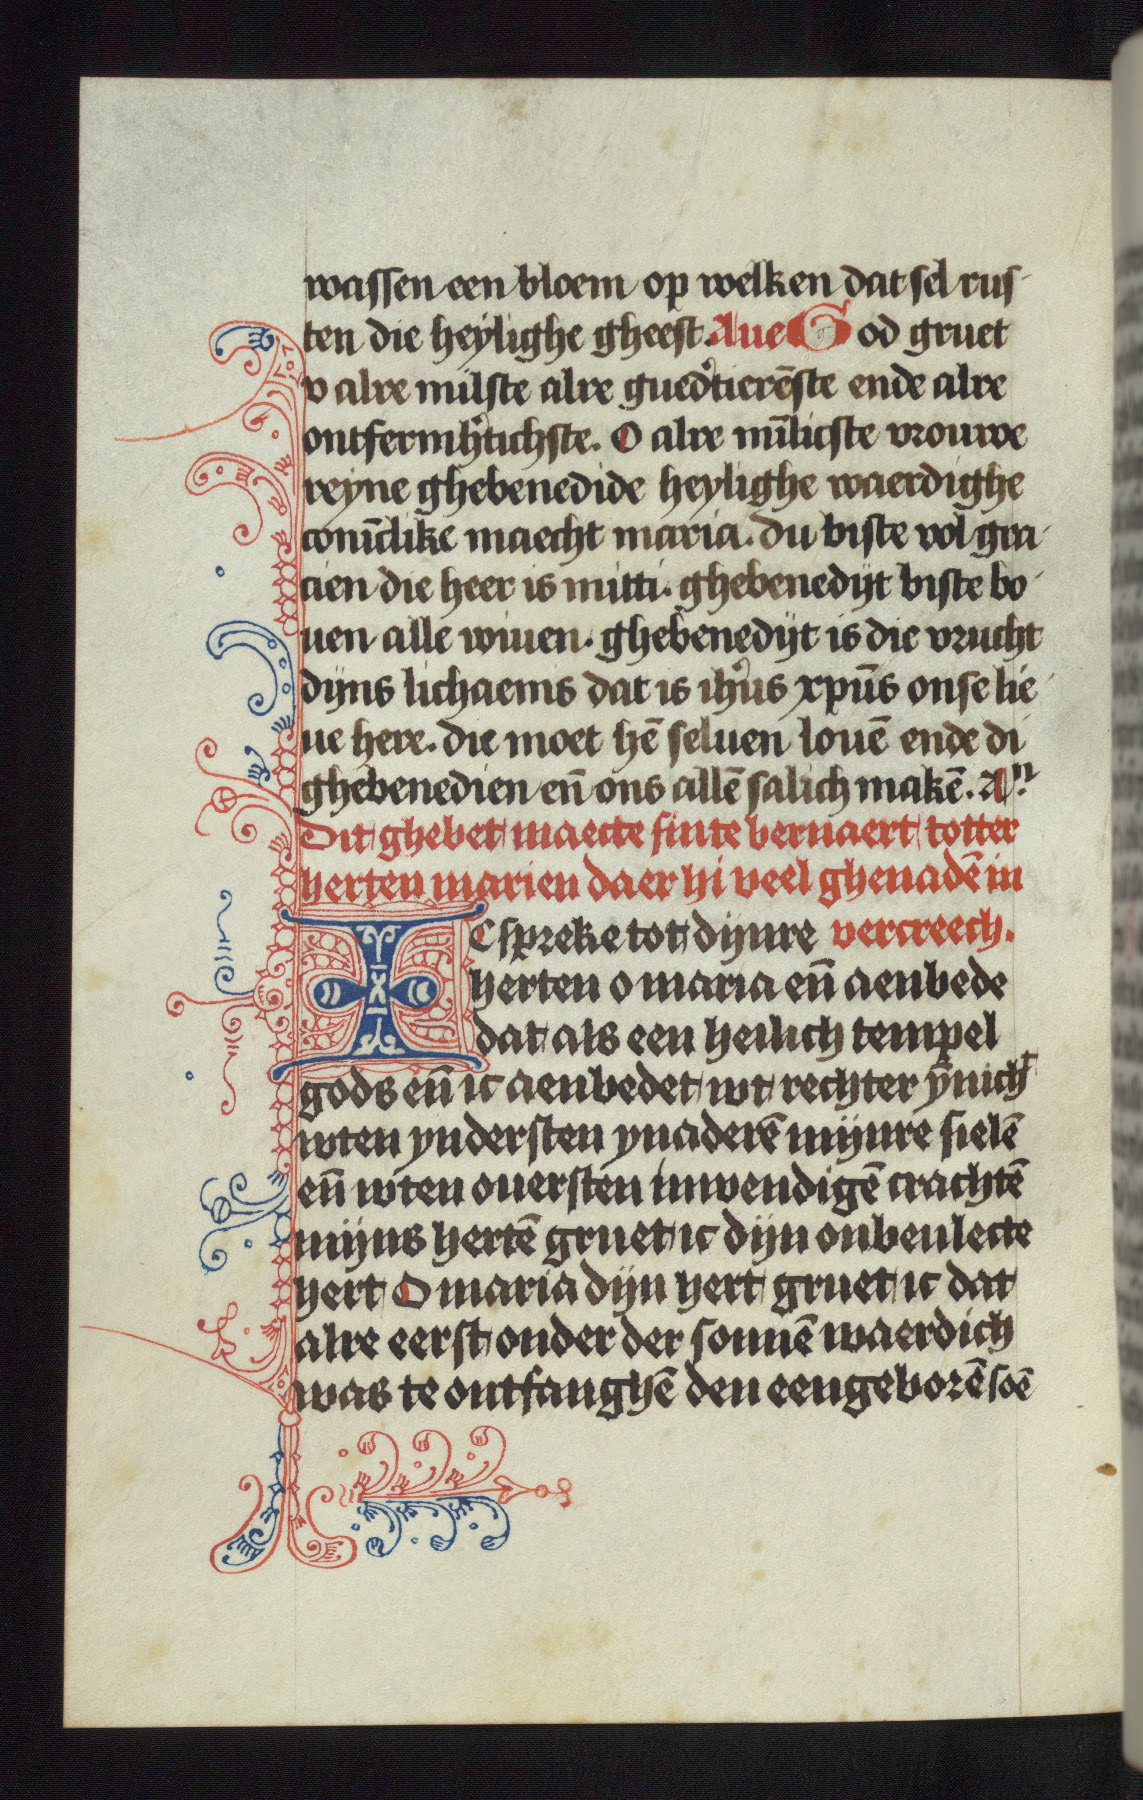 wassen een bloem op welken dat sel rus-
ten die heylighe gheest. Aue God gruet
v alre milste alre guedertierēste ende alre
ontfermhertichste. O alre mīlicste vrouwe
reyne ghebenedide heylighe waerdighe
conīclike maecht maria. du biste vol gra-
cien die heer is mitti. ghebenedijt biste bo-
uen alle wiuen. ghebenedijt is die vrucht
dijns lichaems dat is ihūs xpūs onse lie-
ue here. die moet hē seluen louē ende di
ghebenedien eñ ons allē salich makē. Am̄
Dit ghebet maecte sinte bernaert totter
herten marien daer hi veel ghenadē in
IC spreke tot dijnre vercreech.
herten o maria eñ aenbede
dat als een heilich tempel
gods eñ ic aenbedet wt rechter ȳnicht
wten yndersten ynaderē mijnre sielē
eñ wten ouersten inwendigē crachtē
mijns hertē gruet ic dijn onbeulecte
hert O maria dijn hert gruet ic dat
alre eerst onder der sonnē waerdich
was te ontfanghē den eengeborē soē